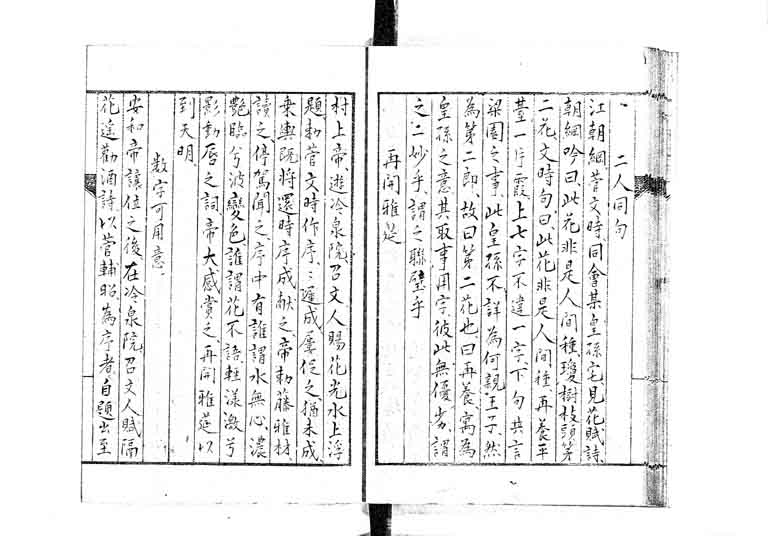 一　二人同句
江朝綱、菅文時、同會某皇孫宅、見花賦詩、
朝綱吟曰、此花非是人間種、瓊樹枝頭第
二花、文時句曰、此花非是人間種、再養平
臺一片霞、上七字不違一字、下句共言
梁園之事、此皇孫不詳為何親王子、然
為第二郎、故曰第二花也、曰再養、寓為
皇孫之意、其取事用字、彼此無優劣、謂
之二妙乎、謂之聯璧乎
再開雅筵
村上帝、遊冷泉院、召文人賜花光水上浮
題、勅菅文時作序、々遲成、屢促之猶未成、
乗輿既將還、時序成献之、帝勅藤雅材、
讀之、停駕聞之、序中有誰謂水無心、濃
艷臨兮波變色、誰謂花不語、輕漾激兮
影動唇之詞、帝大感賞之、再開雅筵以
到天明、
數字可用意、
安和帝讓位之後、在冷泉院、召文人賦隔
花遙勸酒詩、以菅輔昭為序者、自題出至